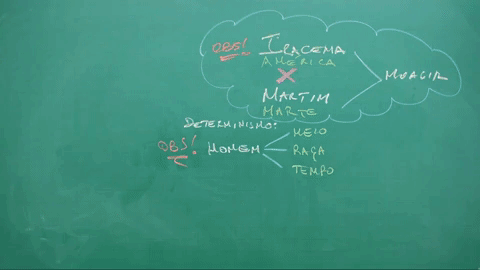 OBS! IRACEMA
AMÉRICA
X
MOACIR
MARTIM
MARTE
DETERMINISMO:
MEIO
OBS! HOMEM RAÇA
TEMPO